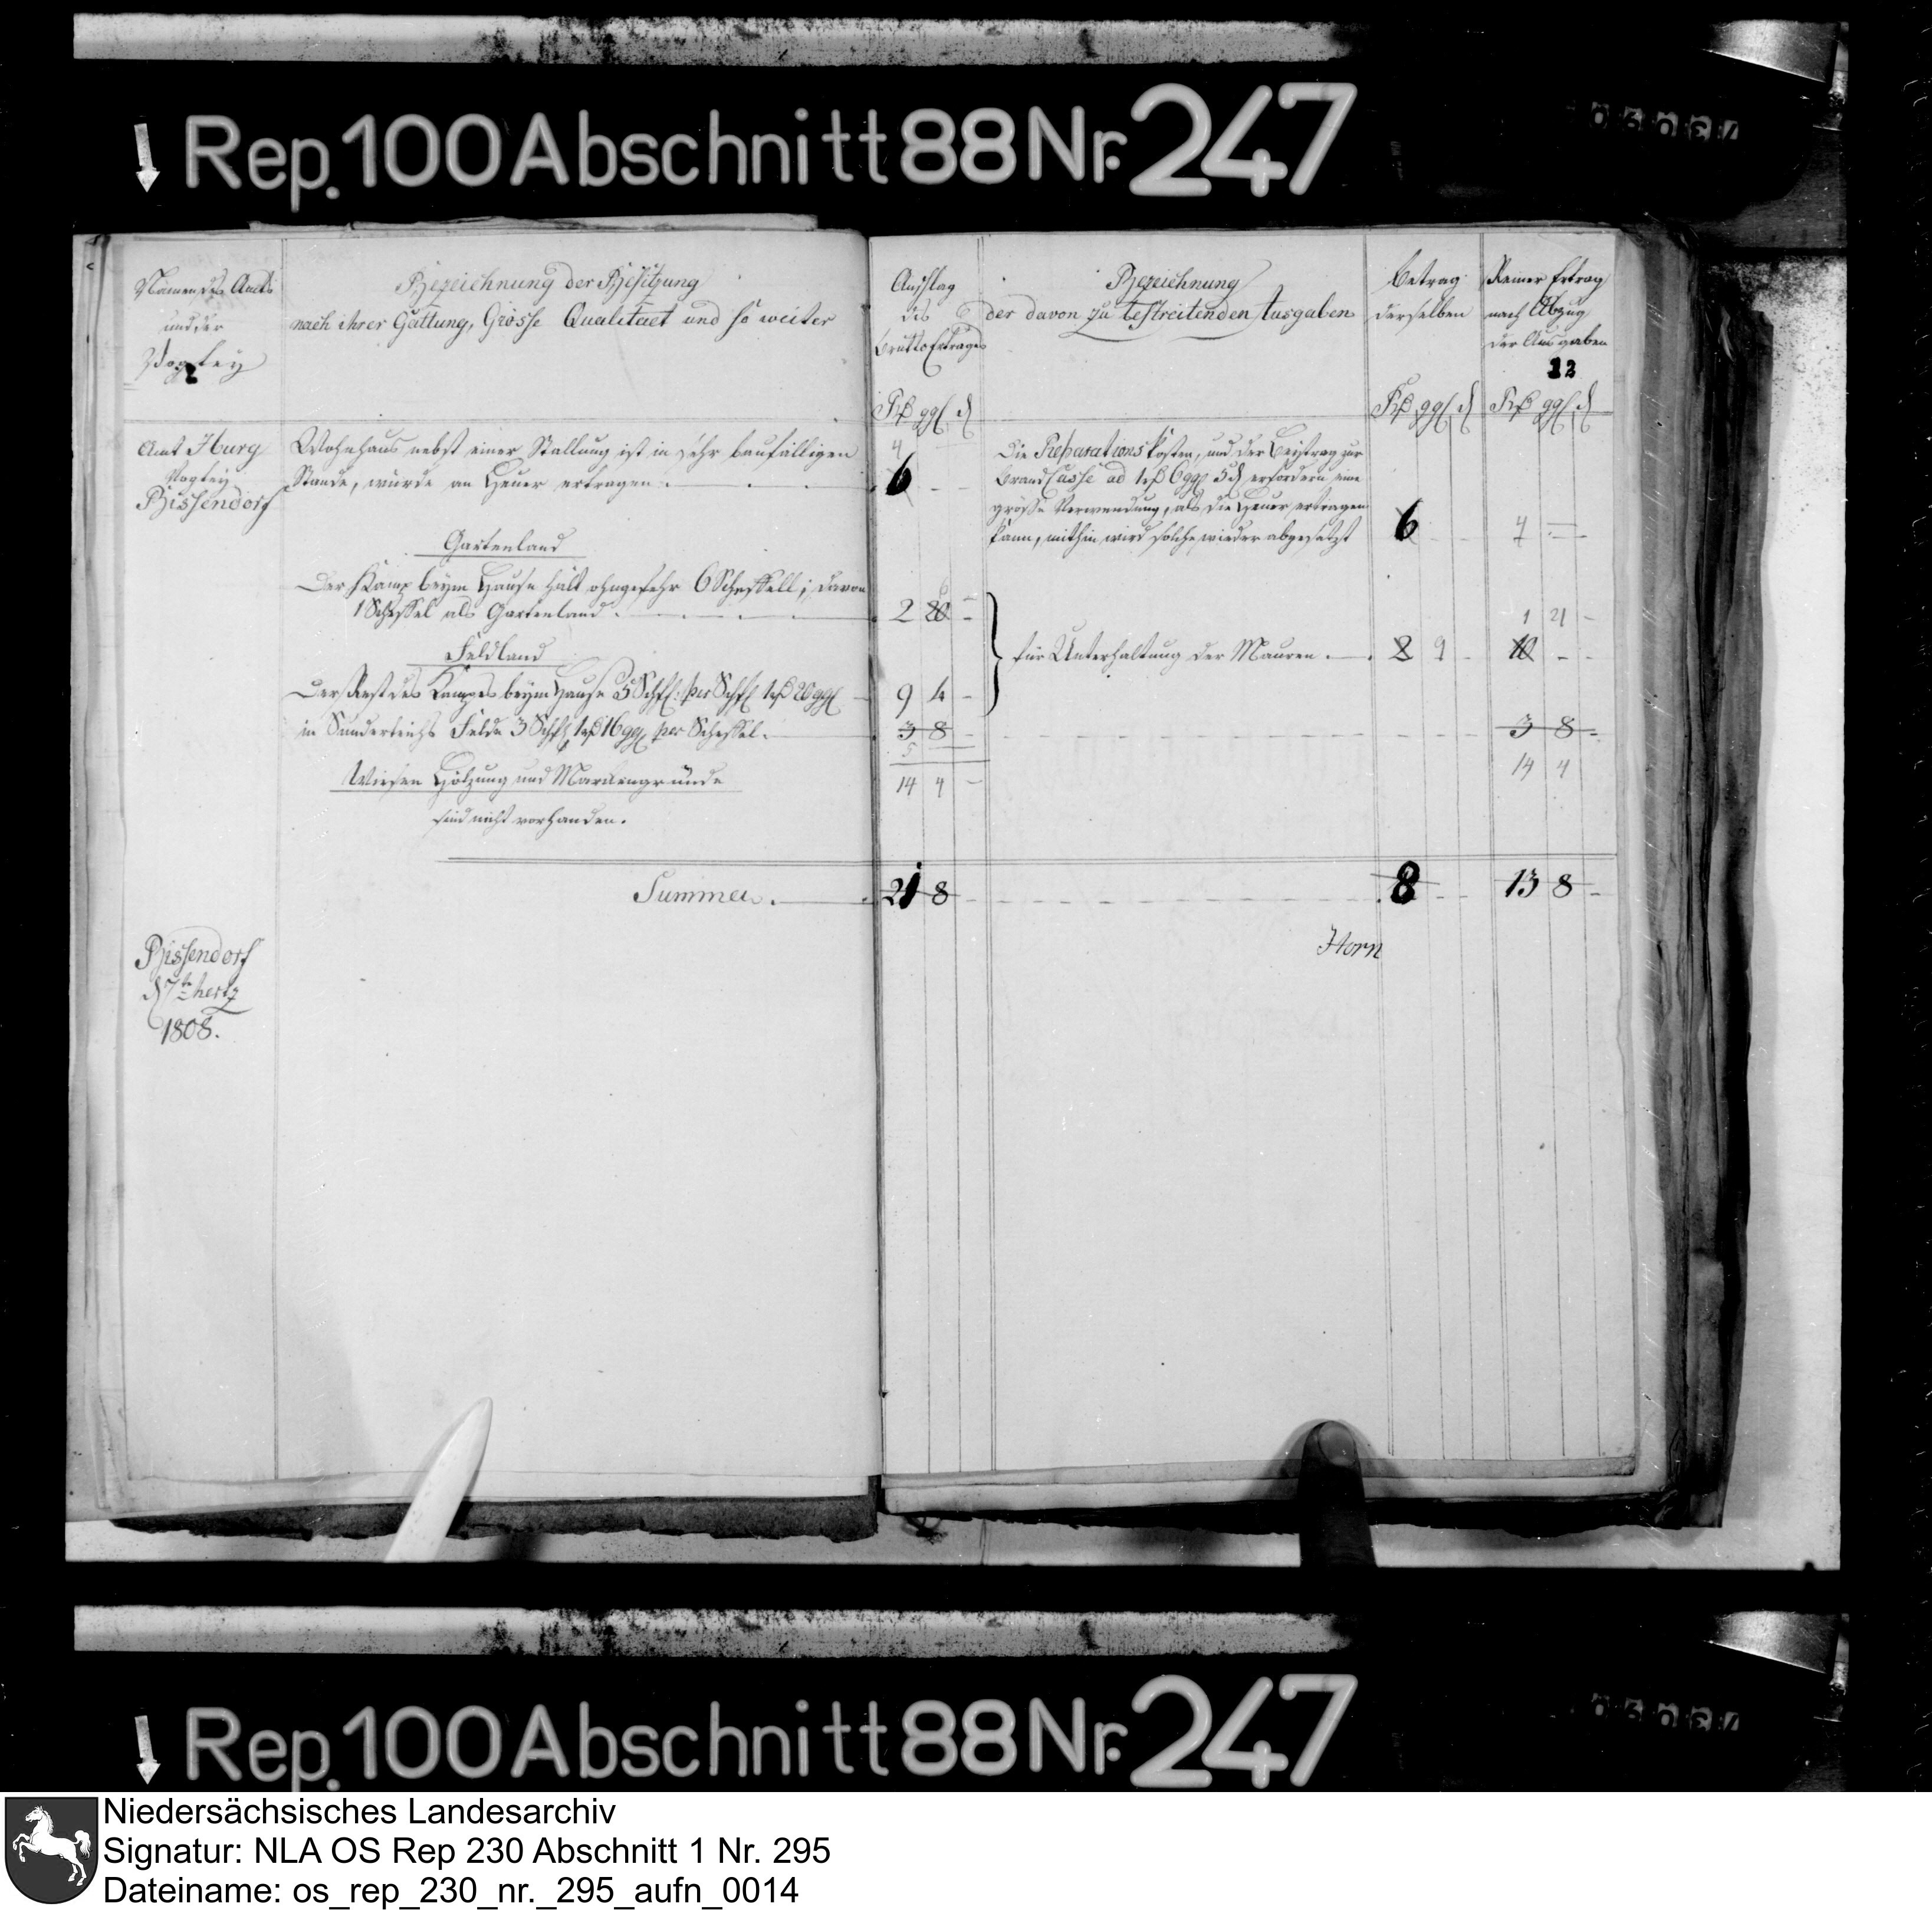 Rep. 100 Abschnitt 88 Nr. 247
Namen des Amts
und der
Vogtey
Bezeichnung der Besitzung
nach ihrer Gattung, Grösse Qualitaet und so weiter
Anschlag
des
Brutto Ertrages
Bezeichnung
der davon zu bestreitenden Ausgaben
Betrag
derselben
Reiner Ertrag
nach Abzug
der Ausgaben
12
Rthl ggl d
Rthl ggl d
Rthl ggl d
Amt Iburg
Vogtey
Bissendorf
Wohnhaus nebst einer Stallung ist in sehr baufälligen
Stande, würde an Heuer ertragen
4
6 - -
Die Reparations kosten, und der Beytrag zur
Brand Casse ad 1 rthl 6 ggl 5 d erfordern eine
grösse Verwendung, als die Heuer ertragen
kann, mithin wird solche wieder abgesetzt
6 - -
4
Gartenland
Der Kamp beym Hause hält ohngefehr 6 Scheffell; davon
1 Scheffel als Gartenland
2 20 -
Feldland
für Unterhaltung der Mauren
2 9 -
1 21 -
10 - -
Der Rest des Kampes beym Hause 5 Schfl: per Schfl 1 rthl 20 ggl
9 4 -
in Felde 3 Schfl 1 rthl 16 ggl per Scheffel
3 8 -
3 8 -
5
Wiesen Holzung und Markengründe
14 4 -
14 4
sind nicht vorhanden.
Summa
21 8 -
8 - -
13 8 -
Horn
Bissendorf
1808.
Rep. 100 Abschnitt 88 Nr. 247
Niedersächsisches Landesarchiv
Signatur: NLA OS Rep 230 Abschnitt 1 Nr. 295
Dateiname: os_rep_230_nr._295_aufn_0014